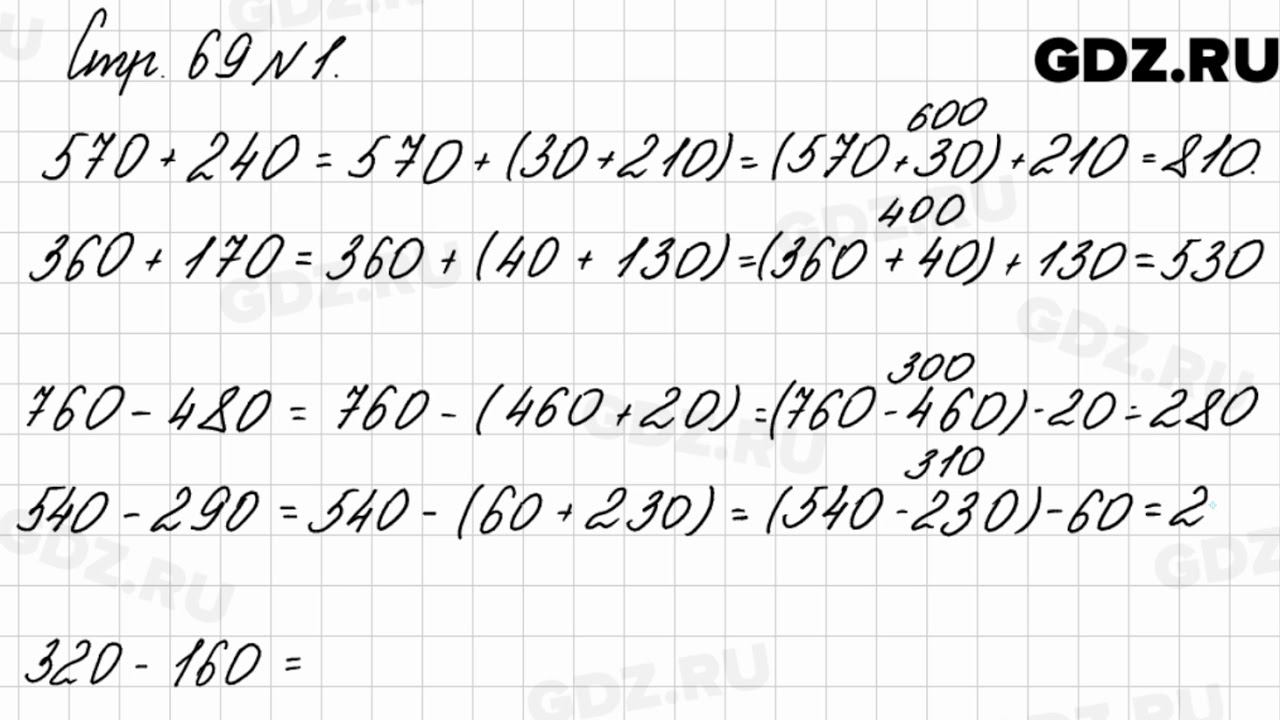 Стр. 69 N 1.
GDZ.RU
600
570 + 240 = 570 + (30 + 210) = (570 + 30) + 210 = 810.
400
360 + 170 = 360 + (40 + 130) = (360 + 40) + 130 = 530
300
760 - 480 = 760 - (460 + 20) = (760 - 460) - 20 = 280
310
540 - 290 = 540 - (60 + 230) = (540 - 230) - 60 = 2
320 - 160 =